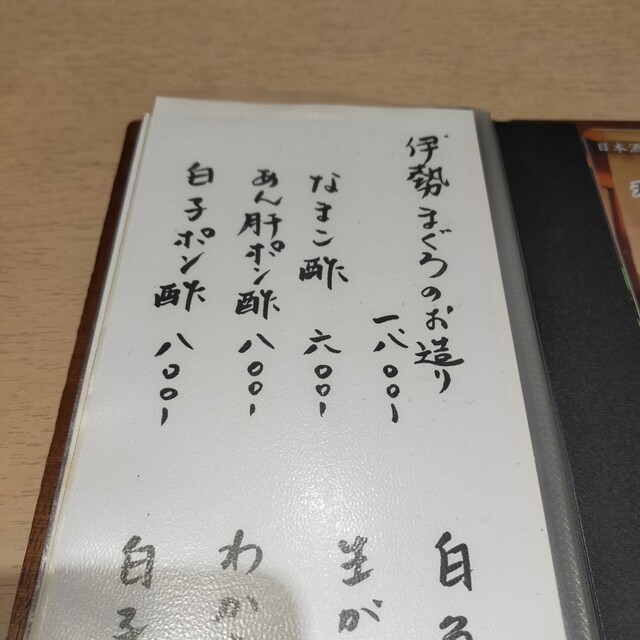 伊勢まぐろのお造り
一八〇〇-
なまこ酢 六〇〇-
あん肝ポン酢 八〇〇-
白子ポン酢 八〇〇-
白
生が
わか
白子
日本酒